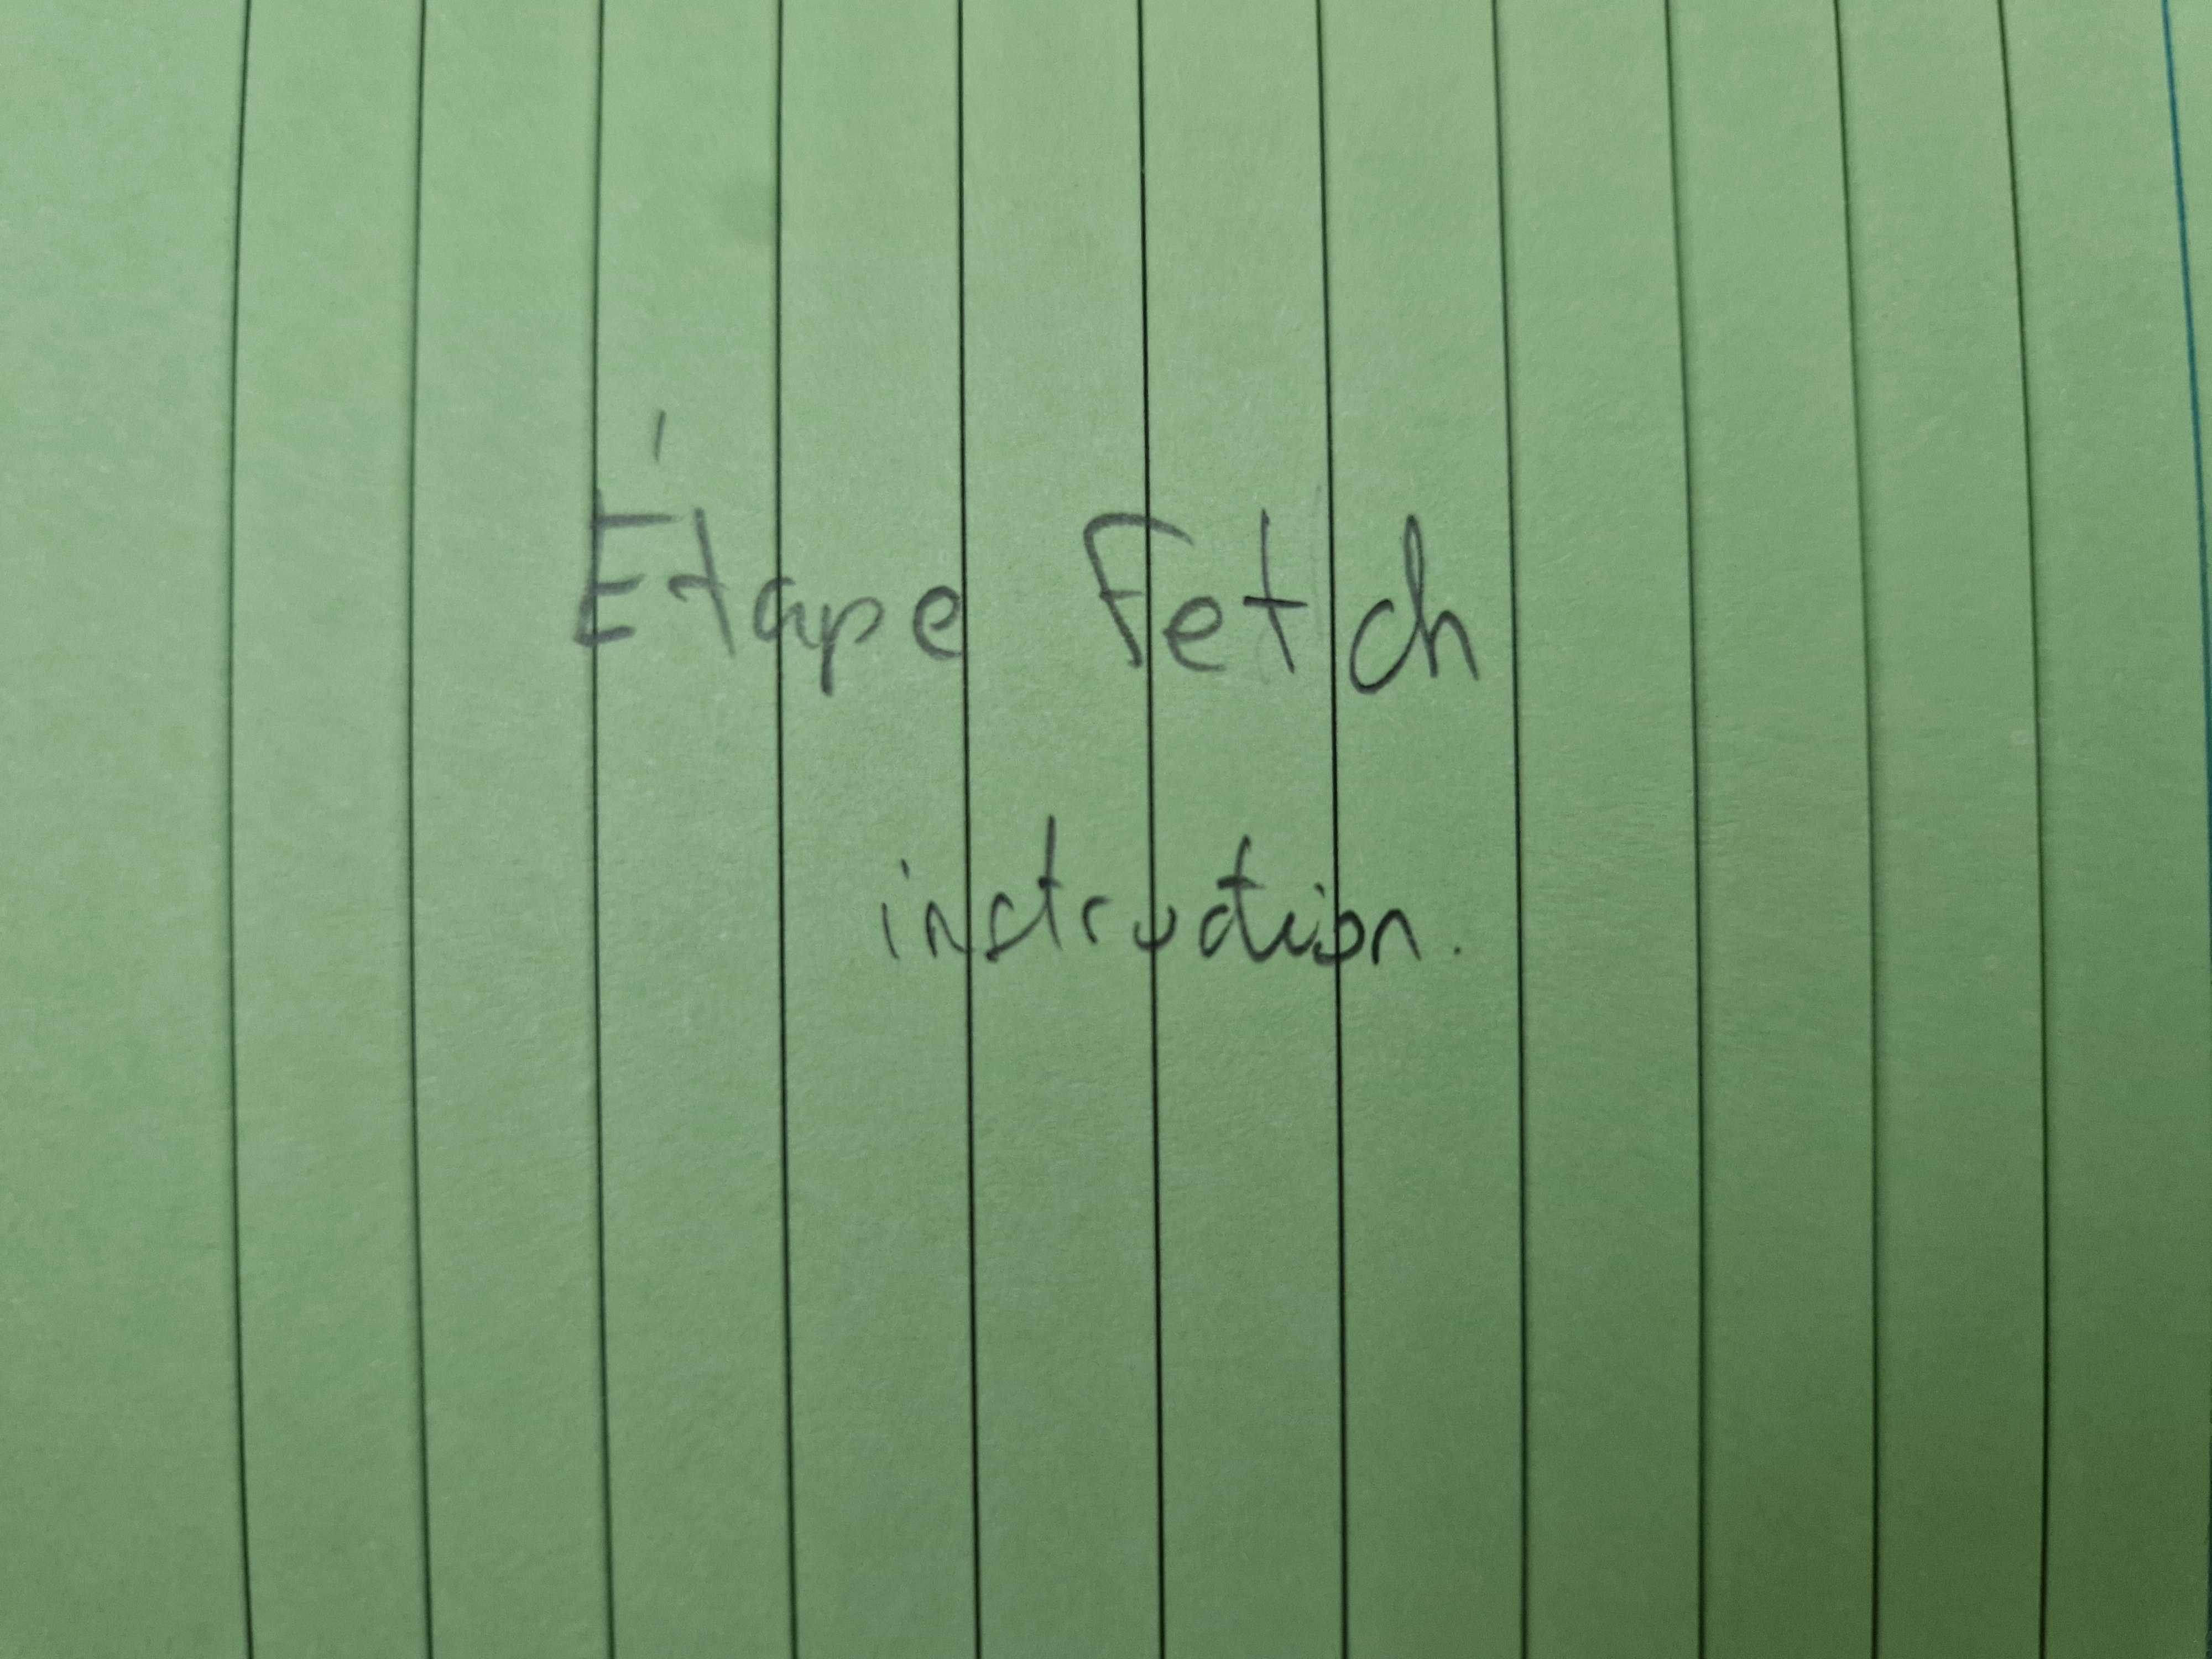 Étape Fetch
instruction.